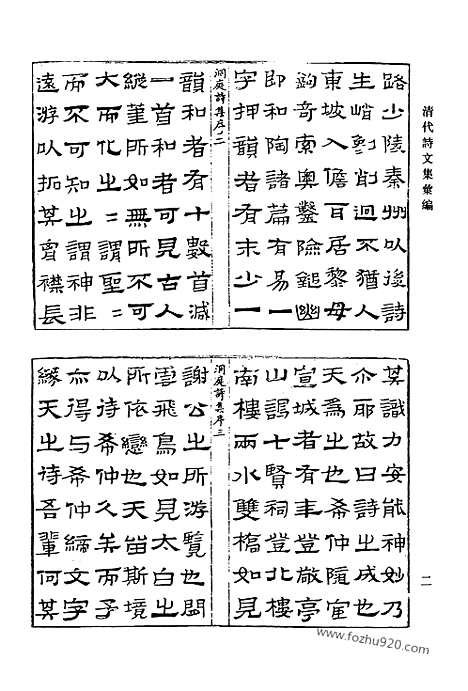 清代詩文集彙編
路少陵秦州以後詩
生峭刻削迥不猶人
東坡入儋耳居黎母
鉤奇索奧鑿險鎚幽
即和陶諸篇有易一
字押韻者有末少一
洞庭詩集序二
韻和者有十數首減
一首和者可見古人
縱筆所如無所不可
大而化之二謂聖二
而不可知之謂神非
遠游以拓其胷襟長
其識力安能神妙乃
尒耶故曰詩之成也
天爲之也希仲隨宦
宣城者有年登敬亭
山謁七賢祠登北樓
南樓兩水雙橋如見
洞庭詩集序三
謝公之所游覽也閒
雲飛鳥如見太白之
所依戀也天畱斯境
以待希仲久矣而予
亦得与希仲締文字
緣天之待吾輩何其
二
www.fozhu920.com